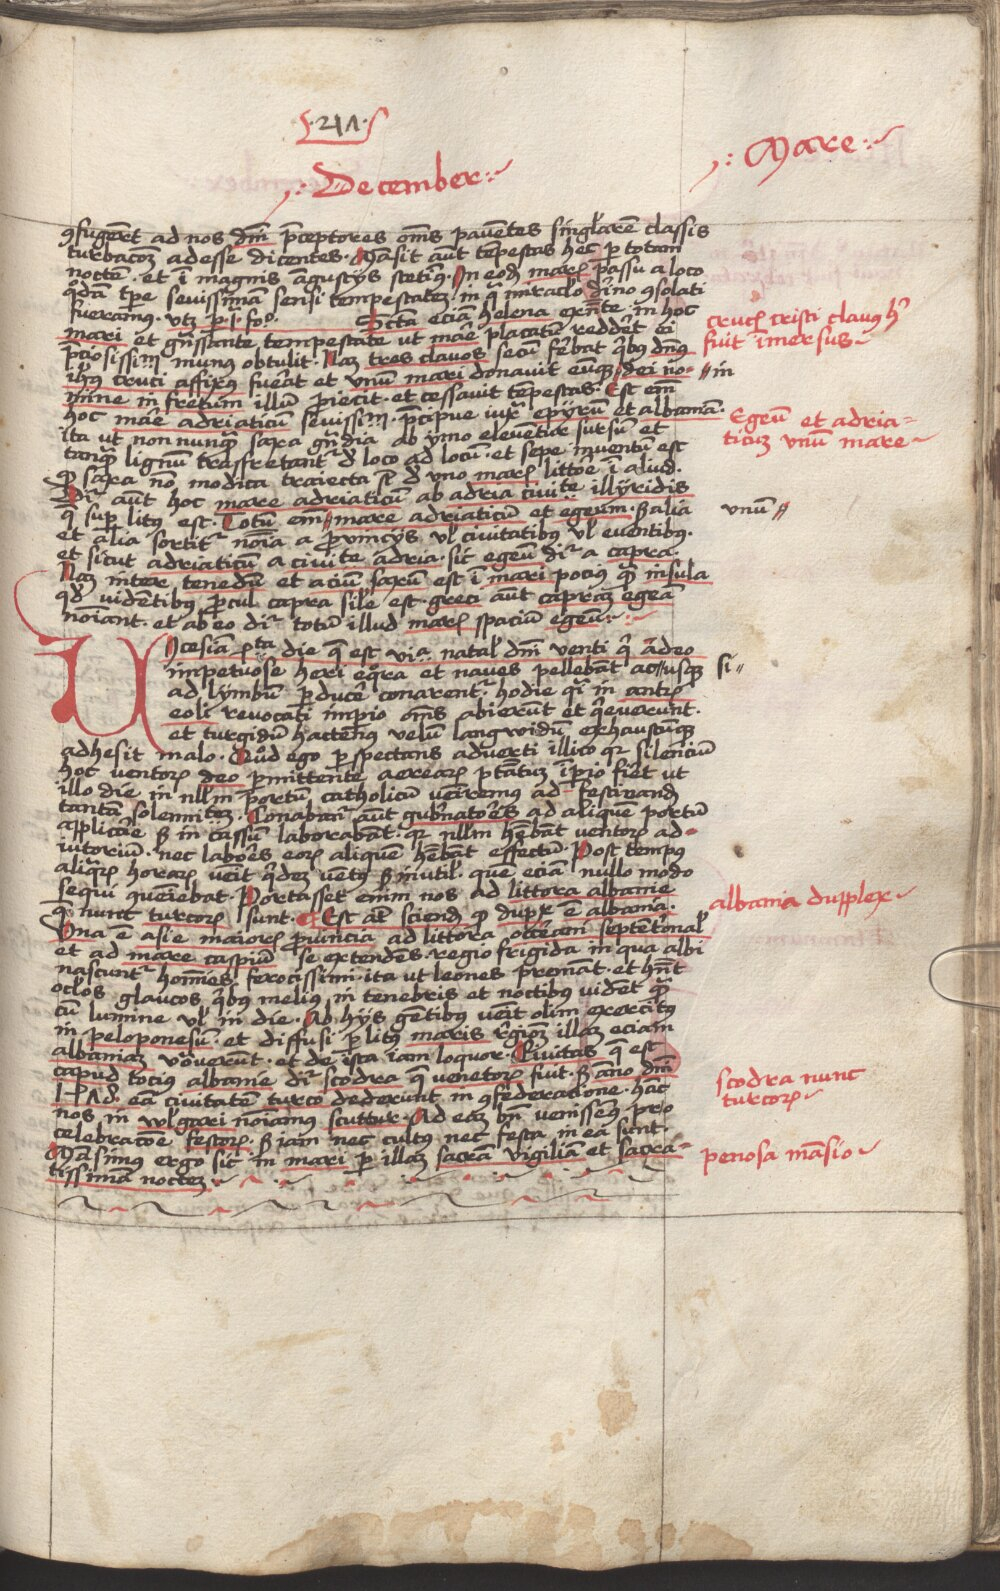 ·217·
December
Mare
ꝯfugerūt ad nos dn̄m p̄ceptores om̄s paventes singlarē classis
turbacōꝫ adesse dicentes. Mansit aūt tēpestas hec p totam
noctē. et ī magnis angustijs stetimꝰ. In eodē marꝭ passu a loco
qdā tp̄e sevissimā sensi tempestatē in q̄ miraclo dīno ꝯsolati
fueramꝰ. utꝫ p. i. fo.
Sctā eciā helena exn̄te in hoc
mari et gn̄ssante tempestate ut mare placatū redderet ei
p̄ciosissim̄ munꝰ obtulit. Naꝫ tres clavos secū ferebat qibꝰ dn̄ꝰ
ihs̄ cruci affixꝰ fuerat et unū mari donavit eūqꝫ dei no= // in
mine in fretum illū proiecit. et cessavit tēpestas. Est em̄
hoc mare adriaticū sevissim̄. p̄cipue iux epyrū et albaniā.
ita ut non nunq̄ saxa gn̄dia ab ymo eleventur sursū et
tanq̄ lignū trāsfretantᷣ d loco ad locū. et sepe inventū est
qꝫ saxa nō modica traiecta sꝫ d uno marꝭ littoe ī aliud.
Dīᷣ aūt hoc mare adriaticū ab adria civite illÿridis
q̄ sup litꝰ est. Totū em̄ // mare adriaticū et egeum. ꝫ alia
et alia sortitᷣ noīa a provincijs ul civitatibꝰ ul eventibꝰ.
et sicut adriaticū a civite adria. sic egeū dīᷣ a capra.
Naꝫ inter tenedū et aciū saxū est ī mari pocius q̄ insula
qd videntibꝰ procul capra sile est. greci aūt capraꝫ egeā
noīant. et ab eo dīᷣ totū illud marꝭ spaciū egeū.
Vicesiā q̄rta die q̄ est via natal dn̄i venti q̄ adeo
impetuose heri eqora et naves pellebāt ac//usqꝫ si//
ad lymbū pducē conarentᷣ. hodie qī in antrꝭ
eoli revocati impio om̄s abierūt et qieverunt.
et turgidū hactenꝰ velū langwidū exhaustūqꝫ
adhesit malo. Quod ego pspectans adverti illico qꝫ silenciū
hoc ventorꝭ deo pmittente aerearꝭ ptātuꝫ īpio fieret ut
illo die in nllm portū catholicū veniremus ad festivandā
tantā solennitē. Conabanᷣ aūt gubernatores ad aliquē portū
applicare ꝫ in cassū laborabāt. qꝫ nllm hēbāt ventorꝭ ad=
iutoriū. nec labores eorꝭ aliquē hēbāt effectū. Post tempus
aliqrꝭ horarꝭ venit qidē ventꝰ ꝫ inutil. quē eciā nullo modo
sequi querebat. Portasset enim nos ad littora albanie
q̄ nunc turcorꝭ sunt. Est aūt sciendū qꝫ duplex ē albania.
Una ē asie maiorꝭ provincia ad littora occeani septētrional
et ad mare caspiū se extendēs. regio frigida in qua albi
nascuntᷣ hoīnes ferocissimi. ita ut leones premāt. et hn̄t
oclos glaucos qibꝰ meliꝰ in tenebris et noctibꝰ vidēt q̄
cū lumine ul in die. Ab hijs gētibꝰ venit olim exercitꝰ
in peloponesū. et diffusi p litꝰ maris rgionē illaꝫ eciam
albaniaꝫ vocaverūt. et de ista iam loquor. Civitas q̄ est
capud tocius albanie dīᷣ scodra q̄ venetorꝭ fuit. ꝫ āno dn̄i
eā civitatē turco dederunt in ꝯfederatione. hanc
nos in wlgari noīamus scuttur. Ad eaꝫ bn̄ venissemꝰ pro
celebracōe festorꝭ. ꝫ iam nec cultꝰ nec festa in ea sunt.
Mansimꝰ ergo sic in mari p illaꝫ sacrā vigiliā et sacra=
tissimā noctē.
crucꝭ cristi clavus h̄
fuit īmersus
Egeū et adria=
ticuꝫ unū mare
unū //
albania dupplex
scodra nunc
turcorꝭ
penosa māsio